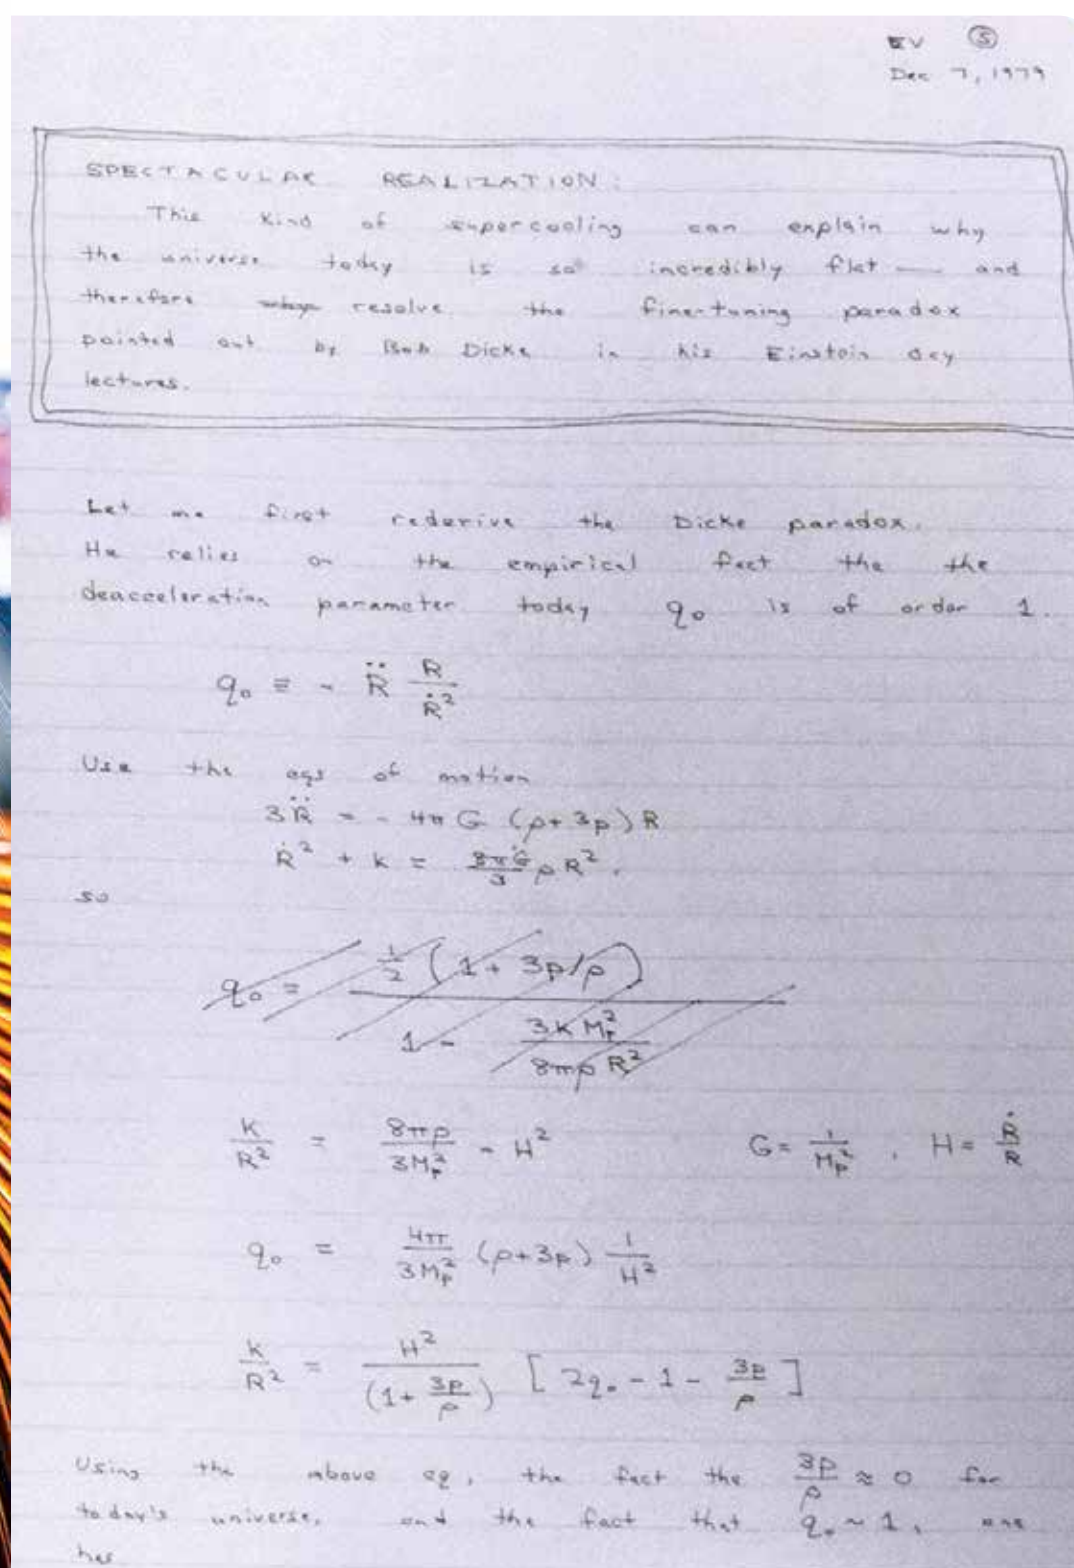 EV ⑤
Dec 7, 1979
SPECTACULAR REALIZATION:
This kind of supercooling can explain why
the universe today is so incredibly flat — and
therefore resolve the fine-tuning paradox
pointed out by Bob Dicke in his Einstein day
lectures.
Let me first rederive the Dicke paradox.
He relies on the empirical fact the the
deacceleration parameter today q₀ is of order 1.
q₀ ≡ - R̈ R/Ṙ²
Use the eqs of motion
3R̈ = - 4πG (ρ+3p)R
Ṙ² + k = 8πG/3 ρR².
so
q₀ = ½(1 + 3p/ρ) / (1 - 3kMₚ²/8πρR²)
k/R² = 8πρ/3Mₚ² - H² G = 1/Mₚ², H = Ṙ/R
q₀ = 4π/3Mₚ² (ρ+3p) 1/H²
k/R² = H²/(1 + 3p/ρ) [2q₀ - 1 - 3p/ρ]
Using the above eq, the fact the 3p/ρ ≈ 0 for
today's universe, and the fact that q₀ ~ 1, one
has